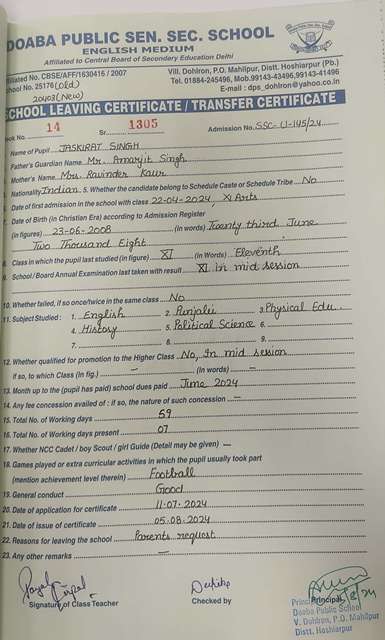 DOABA PUBLIC SEN. SEC. SCHOOL
ENGLISH MEDIUM
Affiliated to Central Board of Secondary Education Delhi
Affiliated No. CBSE/AFF/1630416 / 2007
Vill. Dohlron, P.O. Mahilpur, Distt. Hoshiarpur (Pb.)
School No. 25176 (Old)
Tel. 01884-245496, Mob.99143-43496,99143-41496
20403 (New)
E-mail : dps_dohlron@yahoo.co.in
SCHOOL LEAVING CERTIFICATE / TRANSFER CERTIFICATE
Book No. 14 Sr. 1305 Admission No. SSC-U-145/24
Name of Pupil JASKIRAT SINGH
Father's Guardian Name Mr. Amarjit Singh
Mother's Name Mrs. Ravinder Kaur
Nationality Indian 5. Whether the candidate belong to Schedule Caste or Schedule Tribe No
Date of first admission in the school with class 22-04-2024, XI Arts
Date of Birth (in Christian Era) according to Admission Register
(in figures) 23-06-2008 (in words) Twenty third June
Two Thousand Eight
8. Class in which the pupil last studied (in figure) XI (in Words) Eleventh
9. School / Board Annual Examination last taken with result XI In mid session
10. Whether failed, if so once/twice in the same class No
11. Subject Studied : 1. English 2. Punjabi 3. Physical Edu.
4. History 5. Political Science 6.
7. 8. 9.
12. Whether qualified for promotion to the Higher Class No, In mid session
if so, to which Class (in fig.) — (in Words) —
13. Month up to the (pupil has paid) school dues paid June 2024
14. Any fee concession availed of : if so, the nature of such concession —
15. Total No. of Working days 59
16. Total No. of Working days present 07
17. Whether NCC Cadet / boy Scout / girl Guide (Detail may be given) —
18. Games played or extra curricular activities in which the pupil usually took part
(mention achievement level therein) Football
19. General conduct Good
20. Date of application for certificate 11-07-2024
21. Date of issue of certificate 05-08-2024
22. Reasons for leaving the school Parents request
23. Any other remarks —
Signature of Class Teacher
Checked by
Principal
Principal
Doaba Public School
V. Dohlron, P.O. Mahilpur
Distt. Hoshiarpur